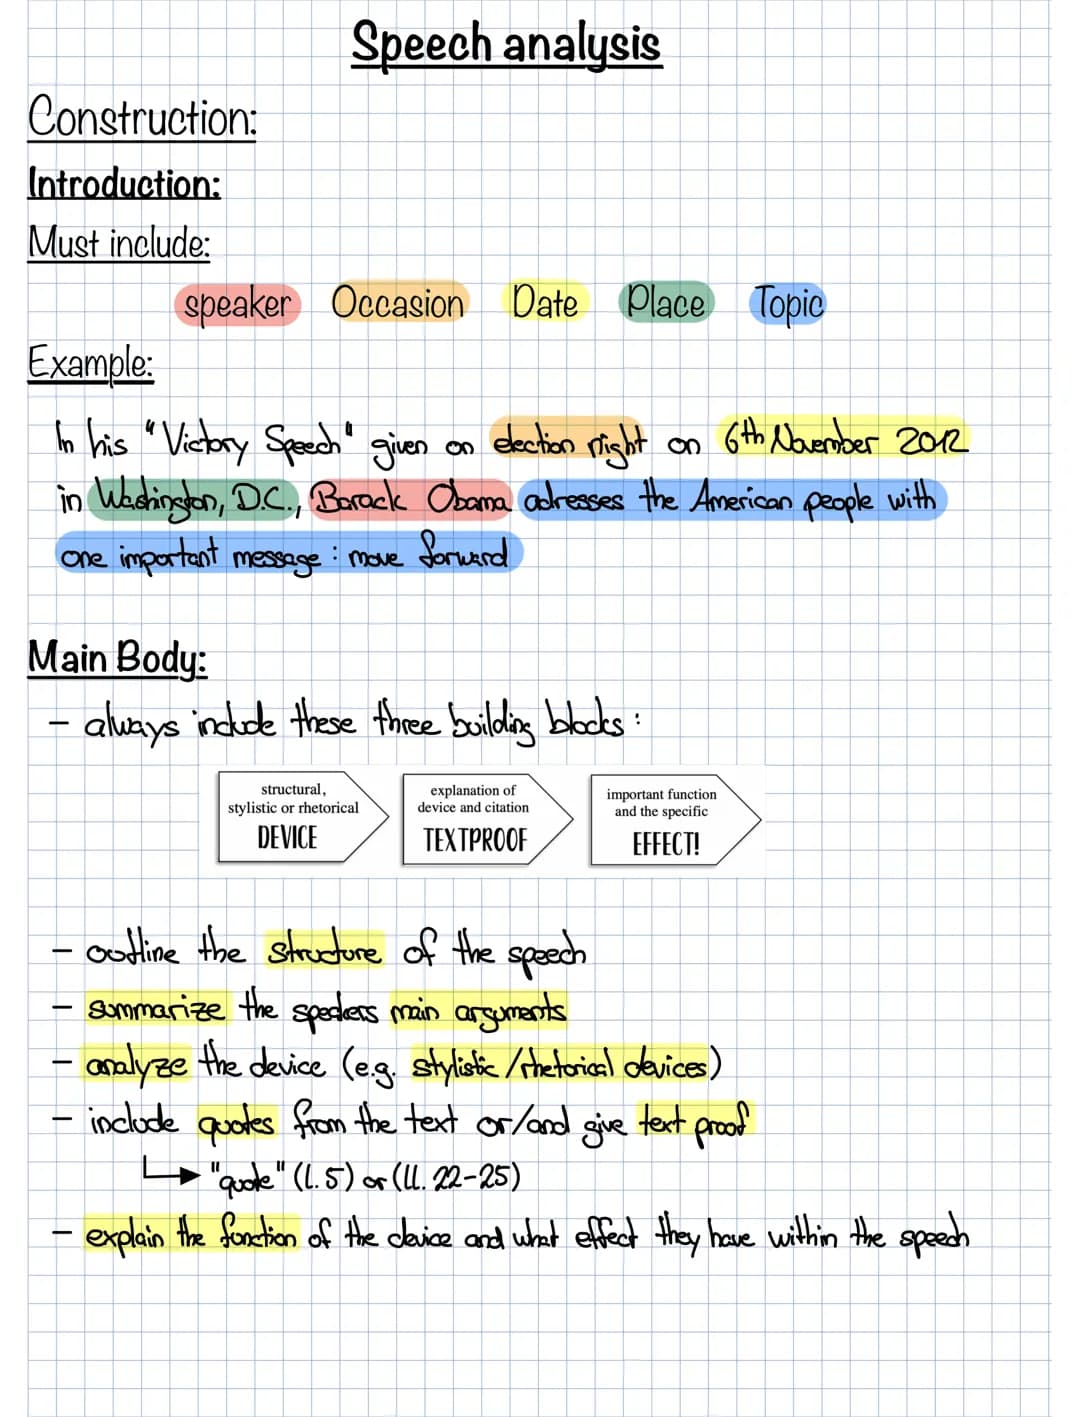 Speech analysis
Construction:
Introduction:
Must include:
speaker Occasion Date Place Topic
Example:
In his "Victory Speech" given on election night on 6th November 2012
in Washington, D.C., Barack Obama adresses the American people with
one important message: move forward
Main Body:
- always include these three building blocks:
structural,
stylistic or rhetorical
DEVICE
explanation of
device and citation
TEXTPROOF
important function
and the specific
EFFECT!
- outline the structure of the speech
- summarize the speakers main arguments
- analyze the device (e.g. stylistic/rhetorical devices)
- include quotes from the text or/and give text proof
↳ "quote" (l. 5) or (ll. 22-25)
- explain the function of the device and what effect they have within the speech